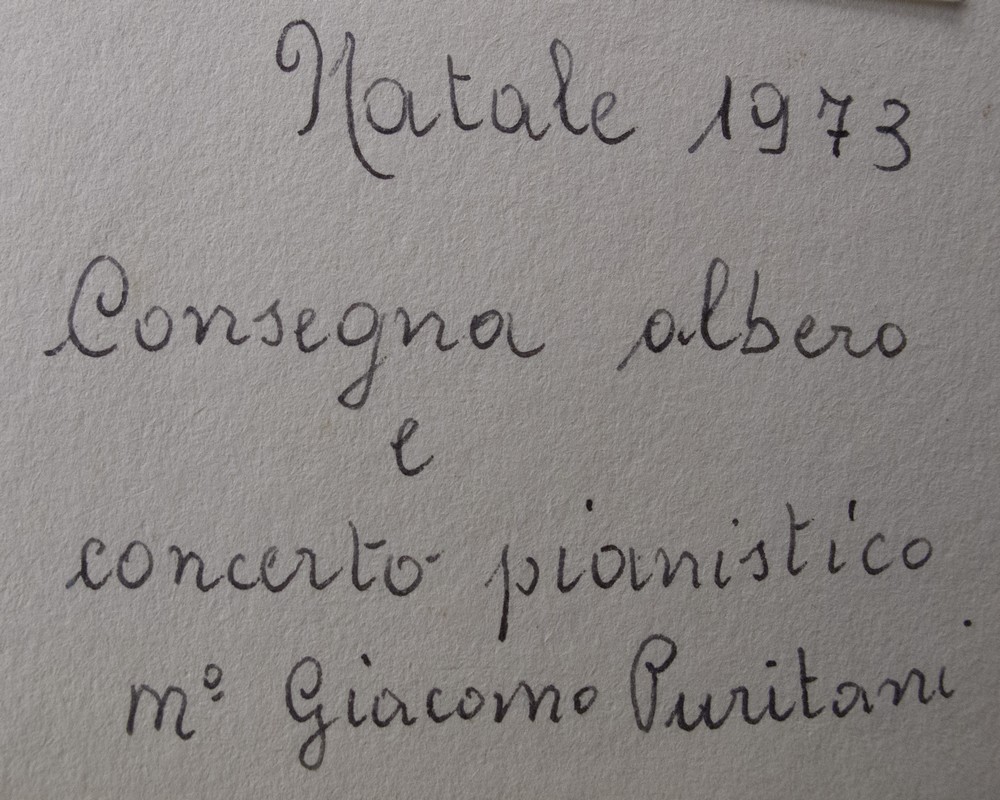 Natale 1973
Consegna albero
e
concerto pianistico
m° Giacomo Puritani